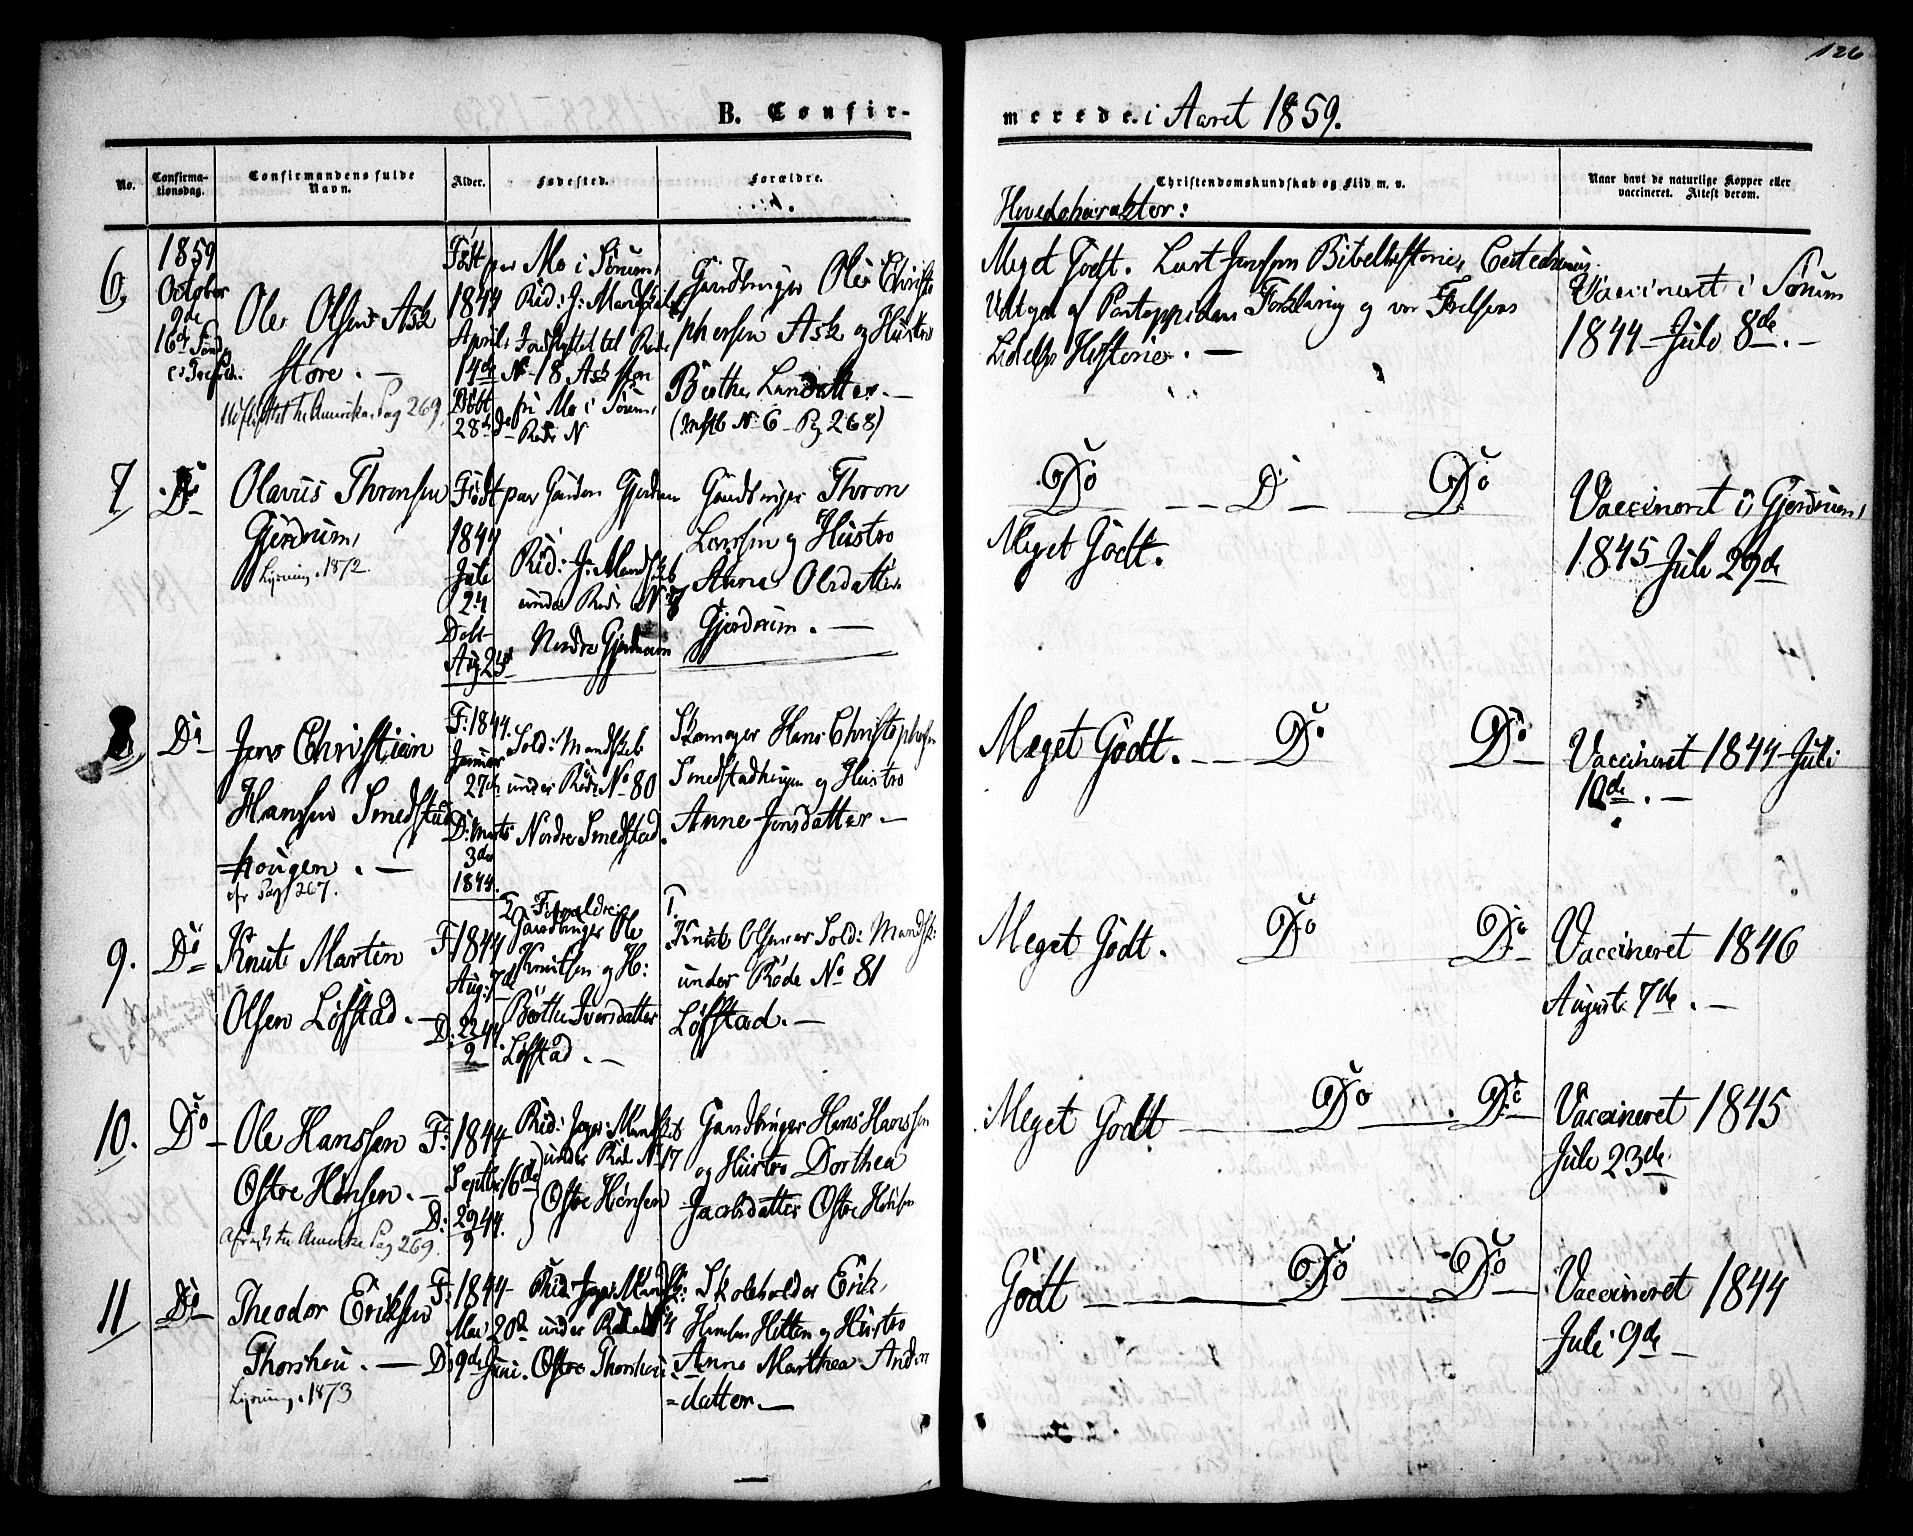 126
B. Confir-
merede. i Aaret 1859.
No.
Confirma-
tionsdag.
Confirmandens fulde
Navn.
Alder.
Fødested.
Forældre.
Christendomskundskab og Flid m. v.
Naar havt de naturlige Kopper eller
vaccineret. Attest derom.
Hovedcharakter:
6,
1859
October
9de
16de
Ole Olsen Ask
store. —
Pag 269.
Födt
1844
April
14de
Döbt
28de
paa Mo i Sörum,
Rid: J: Mandskab
til Rode
No 18 Ask
fri Mo i Sörum,
Rode N
Gaardbruger Ole Christo
phersen Ask og Hustro
Berthe Larsdatter. —
(Indfl No 6 - Pg 268)
Meget Godt. Læst Jenssens Bibelhistorie,
Udtoget af Pontoppidans Forklaring og vor Frelsers
Lidelses Historie. —
Vaccineret i Sörum
1844 - Juli 8de. —
7
Do
Olavus Thronsen
Gjerdrum,
Lysning. 1872
Födt
1844
Juli
24
Döbt
Aug 25
paa Gaarden Gjerdrum
Rid: J: Mandskb
under Rode No 8
Nordre Gjerdrum
Gaardbruger Thron
Larssen og Hustro
Anne Olsdatter
Gjerdrum. —
Do — D — Do
Meget Godt.
Vaccineret i Gjerdrum,
1845 Juli 29de
8,
Do
Jens Christian
Hanssen Smedstad
=hougen. —
cfr Pag 267.
F: 1844.
Januar
27de
D: Marts
3die
1844.
Sold: Mandskab
under Rode No 80
Nordre Smedstad.
Skomager Hans Christophersen
Smedstadhougen og Hustro
Anne Jensdatter —
Meget Godt. — Do Do —
Vaccineret 1844 Juli
10de. —
9.
Do
Knut Martin
Olsen Löfstad. —
F: 1844
Aug: 7de
D: 22 44.
2
2 Forældre:
Gaardbruger Ole
Knutsen og H:
Berthe Iversdatter
Löfstad. —
1.
Knut Olsen er Sold: Mandsk:
under Rode No 81
Löfstad. —
Meget Godt. Do Do —
Vaccineret 1846
August 7de. —
10.
Do —
Ole Hanssen
Østre Hönsen. —
Amerika Pag 269.
F: 1844
Septbr 16de
D: 29 44.
9
Rid: Jæger: Mandskb
under Rode No 17
Østre Hönsen
Gaardbruger Hans Hanssen
og Hustro Dorthea
Jacobsdatter Østre Hönsen
Meget Godt — Do — Do —
Vaccineret 1845
Juli 23de
11
Do
Theodor Eriksen
Thorshou. —
Lysning. 1873
F: 1844
Mai 20de
D: 9de Juni.
Rid. Jæger: Mandsk:
under Rode
Østre Thorshou
Skoleholder Erik
Hitten og Hustro
Anne Marthea Anders
=datter. —
Godt — Do — Do —
Vaccineret 1844
Juli 9de —